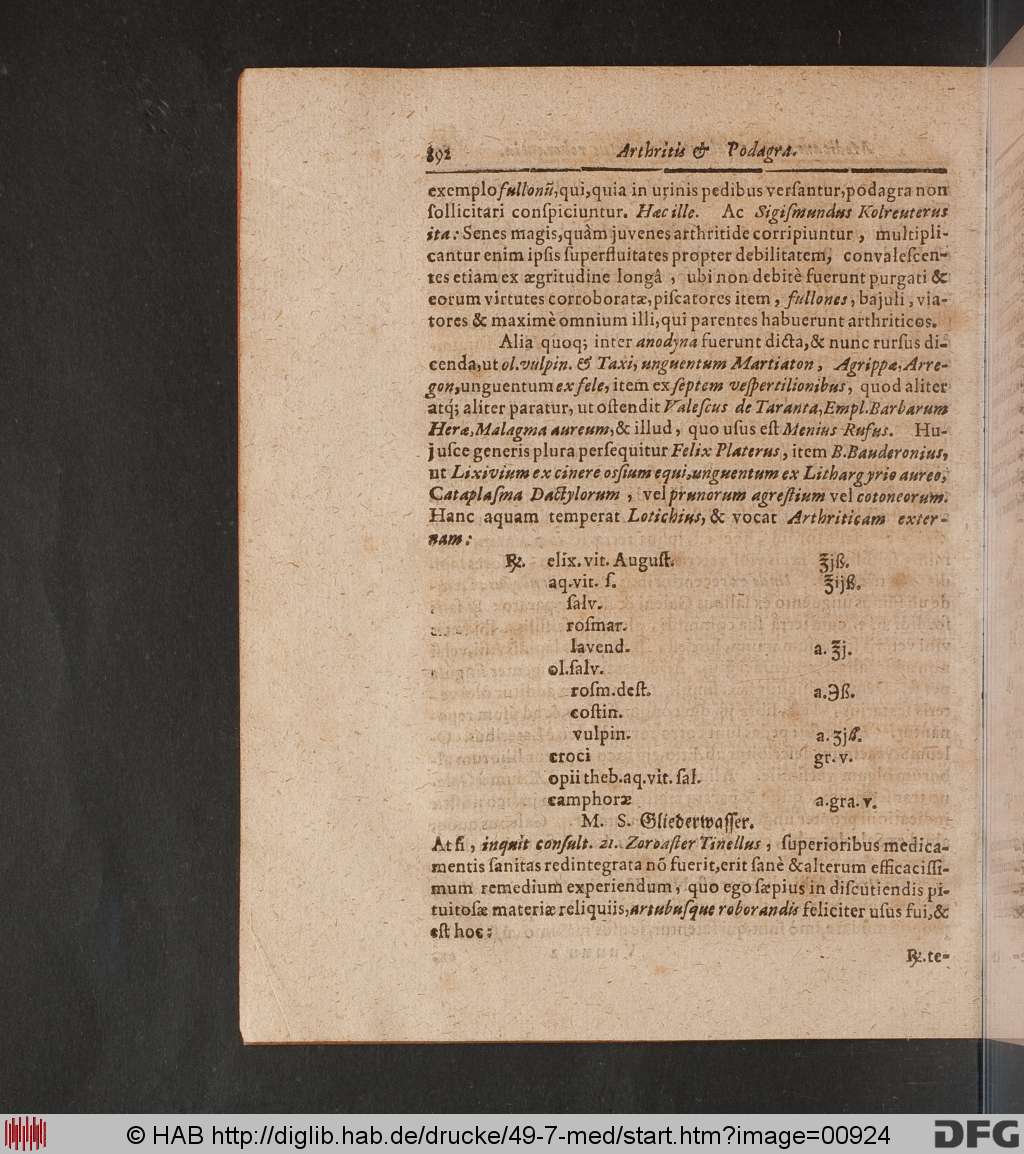 892 Arthritis & Podagra.
exemplo fullonũ, qui, quia in urinis pedibus verſantur, podagra non
ſollicitari conſpiciuntur. Hæc ille. Ac Sigiſmundus Kolreuterus
ita: Senes magis, quàm juvenes arthritide corripiuntur, multipli-
cantur enim ipſis ſuperfluitates propter debilitatem, convaleſcen-
tes etiam ex ægritudine longâ, ubi non debitè fuerunt purgati &
eorum virtutes corroboratæ, piſcatores item, fullones, bajuli, via-
tores & maximè omnium illi, qui parentes habuerunt arthriticos.
Alia quoq; inter anodyna fuerunt dicta, & nunc rurſus di-
cenda, ut ol. vulpin. & Taxi, unguentum Martiaton, Agrippæ, Arre-
gon, unguentum ex fele, item ex ſeptem veſpertilionibus, quod aliter
atq́; aliter paratur, ut oſtendit Valeſcus de Taranta, Empl. Barbarum
Heræ, Malagma aureum, & illud, quo uſus eſt Menius Rufus. Hu-
juſce generis plura perſequitur Felix Platerus, item B. Bauderonius,
ut Lixivium ex cinere osſium equi, unguentum ex Lithargyrio aureo,
Cataplaſma Dactylorum, vel prunorum agreſtium vel cotoneorum.
Hanc aquam temperat Lotichius, & vocat Arthriticam exter-
nam:
℞. elix. vit. Auguſt. ℥jß.
aq. vit. ſ. ℥ijß.
ſalv.
roſmar.
lavend. a. ℥j.
ol. ſalv.
roſm. deſt. a. ℈ß.
coſtin.
vulpin. a. ʒjß.
croci gr. v.
opii theb. aq. vit. ſal.
camphoræ a. gra. v.
M. S. Gliederwaſſer.
At ſi, inquit conſult. 21. Zoroaſter Tinellus, ſuperioribus medica-
mentis ſanitas redintegrata nõ fuerit, erit ſanè & alterum efficaciſſi-
mum remedium experiendum, quo ego ſæpius in diſcutiendis pi-
tuitoſæ materiæ reliquiis, artubuſque roborandis feliciter uſus fui, &
eſt hoc:
℞. te-
© HAB http://diglib.hab.de/drucke/49-7-med/start.htm?image=00924
DFG